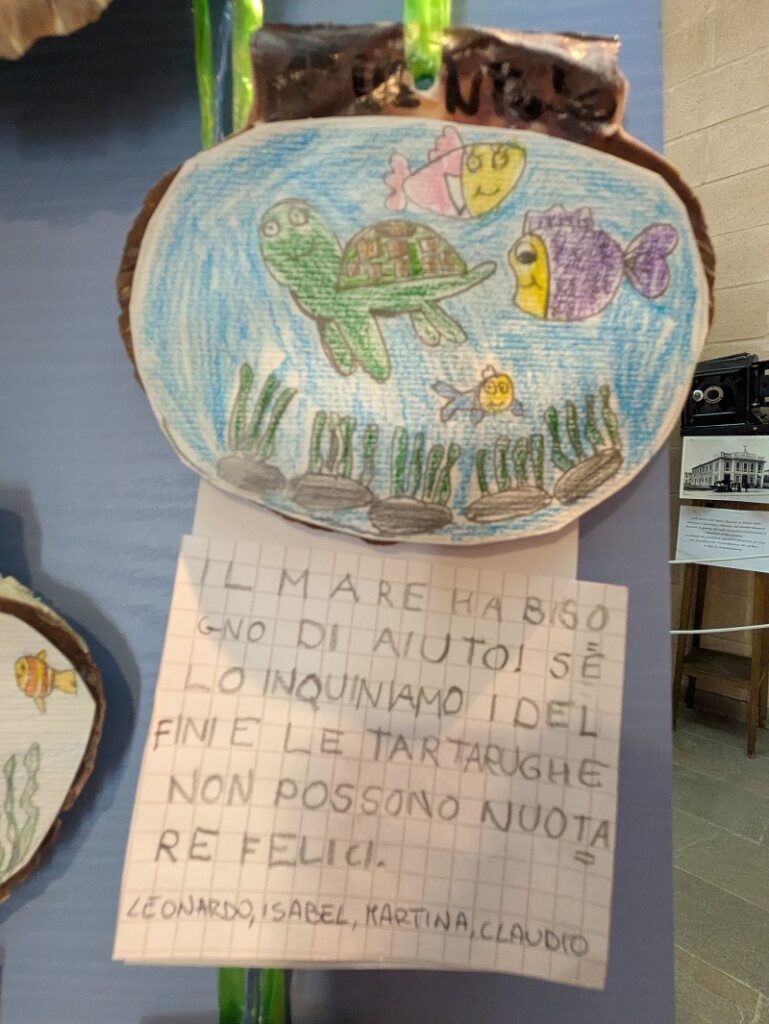 IL MARE HA BISO
GNO DI AIUTO! SE
LO INQUINIAMO I DEL
FINI E LE TARTARUGHE
NON POSSONO NUOTA
RE FELICI.
LEONARDO, ISABEL, MARTINA, CLAUDIO